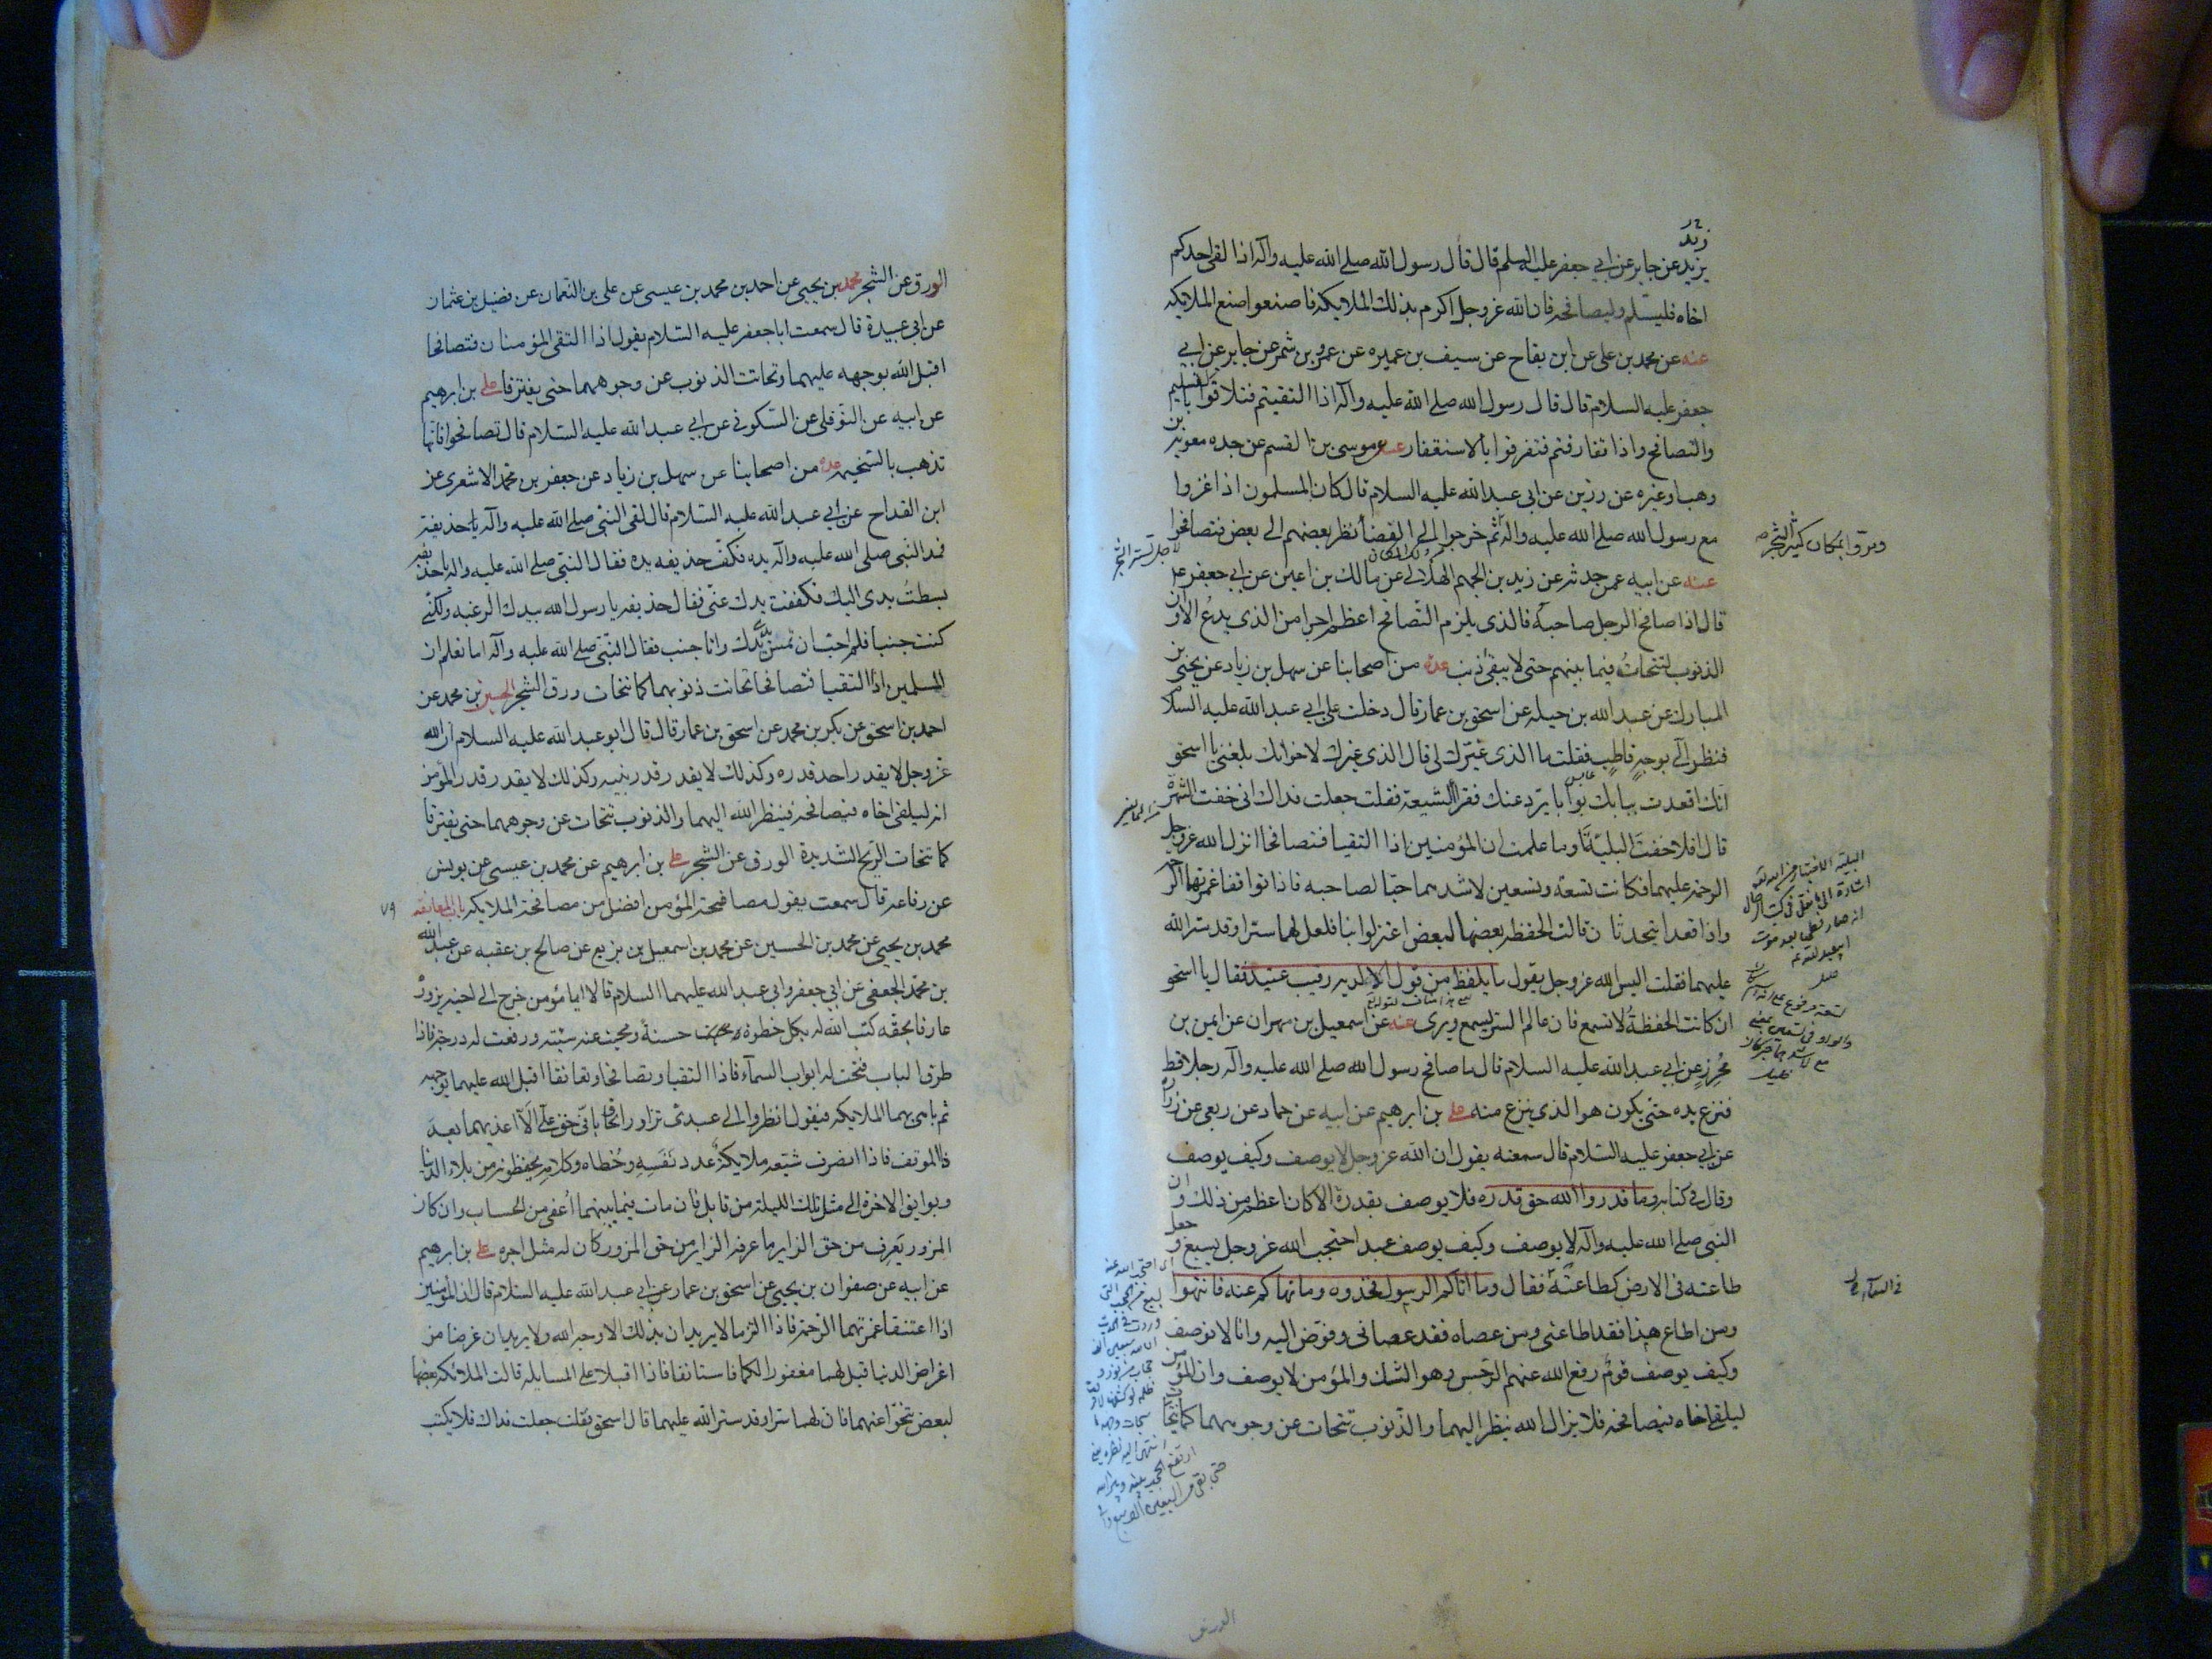 زيد
يزيد عن جابر عن ابي جعفر عليه السلم قال قال رسول الله صلى الله عليه وآله اذا لقى احدكم
اخاه فليسلم وليصافحه فان الله عز وجل اكرم بذلك الملايكة فاصنعوا صنع الملايكه
عنه عن محمد بن على عن ابن بقاح عن سيف بن عميره عن عمرو بن شمر عن جابر عن ابي
جعفر عليه السلام قال قال رسول الله صلى الله عليه وآله اذا التقيتم فتلاقوا بالتسليم
والتصافح واذا تفارقتم فتفرقوا بالاستغفار عنه عن موسى بن القسم عن جده معوية بن
وهب او غيره عن رزين عن ابى عبد الله عليه السلام قال كان المسلمون اذا غزوا
مع رسول الله صلى الله عليه واله ثم خرجوا الى الفضا نظر بعضهم الى بعض فتصافحوا
ومروا بمكان كثير الشجر
عنه عن ابيه عمن حدثه عن زيد بن الجهم الهلالى عن مالك بن اعين عن ابي جعفر عل
قال اذا صافح الرجل صاحبه فالذى يلزم التصافح اعظم اجرا من الذى يدع الا وان
الذنوب لتتحات فيما بينهم حتى لا يبقى ذنب عده من اصحابنا عن سهل بن زياد عن يحيى بن
المبارك عن عبد الله بن جبله عن اسحق بن عمار قال دخلت على ابي عبد الله عليه السلام
فنظر الى بوجه قاطب فقلت ما الذى غيرك لى قال الذى غيرك لاخوانك بلغنى يا اسحق
انك اقعدت ببابك بوابا يرد عنك فقراء الشيعة فقلت جعلت فداك انى خفت الشهرة
قال افلا خفت البلية او ما علمت ان المؤمنين اذا التقيا فتصافحا انزل الله عز وجل
الرحمة عليهما فكانت تسعة وتسعين لاشدهما حبا لصاحبه فاذا توافقا غمرتهما الرحمة
واذا قعدا يتحدثان قالت الحفظه بعضها لبعض اعتزلوا بنا فلعل لهما سترا وقد ستر الله
عليهما فقلت اليس الله عز وجل يقول ما يلفظ من قول الا لديه رقيب عتيد فقال يا اسحق
ان كانت الحفظة لا تسمع فان عالم السر يسمع ويرى عنه عن اسمعيل بن مهران عن ايمن بن
محرز عن ابي عبد الله عليه السلام قال ما صافح رسول الله صلى الله عليه وآله رجلا قط
فنزع يده حتى يكون هو الذى ينزع منه على بن ابرهيم عن ابيه عن حماد عن ربعى عن زرارة
عن ابي جعفر عليه السلام قال سمعته يقول ان الله عز وجل لا يوصف وكيف يوصف
وقال فى كتابه وما قدروا الله حق قدره فلا يوصف بقدرة الا كان اعظم من ذلك وان
النبى صلى الله عليه وآله لا يوصف وكيف يوصف عبد احتجب الله عز وجل بسبع وجعل
طاعته فى الارض كطاعته فقال وما اتاكم الرسول فخذوه وما نهاكم عنه فانتهوا
ومن اطاع هذا فقد اطاعنى ومن عصاه فقد عصانى وفوض اليه وانا لا نوصف
وكيف يوصف قوم رفع الله عنهم الرجس وهو الشك والمؤمن لا يوصف وان المؤمن
ليلقى اخاه فيصافحه فلا يزال الله ينظر اليهما والذنوب تتحات عن وجوههما كما يتحات
الورق
الورق عن الشجر محمد بن يحيى عن احمد بن محمد بن عيسى عن على بن النعمان عن فضيل بن عثمان
عن ابى عبيدة قال سمعت ابا جعفر عليه السلام يقول اذا التقى المؤمنان فتصافحا
اقبل الله بوجهه عليهما وتحاتت الذنوب عن وجوههما حتى يفترقا على بن ابرهيم
عن ابيه عن النوفلى عن السكونى عن ابي عبد الله عليه السلام قال تصافحوا فانها
تذهب بالسخيمه عده من اصحابنا عن سهل بن زياد عن جعفر بن محمد الاشعرى عن
ابن القداح عن ابي عبد الله عليه السلام قال لقى النبى صلى الله عليه وآله حذيفة
فمد النبى صلى الله عليه وآله يده فكف حذيفه يده فقال النبى صلى الله عليه وآله يا حذيفه
بسطت يدى اليك فكففت يدك عنى فقال حذيفه يا رسول الله بيدك الرغبه ولكنى
كنت جنبا فلم احب ان تمس يدى يدك وانا جنب فقال النبى صلى الله عليه وآله اما تعلم ان
المسلمين اذا التقيا فتصافحا تحاتت ذنوبهما كما تتحات ورق الشجر الحسين بن محمد عن
احمد بن اسحق عن بكر بن محمد عن اسحق بن عمار قال قال ابو عبد الله عليه السلام ان الله
عز وجل لا يقدر احد قدره وكذلك لا يقدر قدر نبيه وكذلك لا يقدر قدر المؤمن
انه ليلقى اخاه فيصافحه فينظر الله اليهما والذنوب تتحات عن وجوههما حتى يفترقا
كما تتحات الريح الشديدة الورق عن الشجر على بن ابرهيم عن محمد بن عيسى عن يونس
عن رفاعه قال سمعته يقول مصافحة المؤمن افضل من مصافحة الملايكه باب المعانقه
٧٩
محمد بن يحيى عن محمد بن الحسين عن محمد بن اسمعيل بن بزيع عن صالح بن عقبه عن عبد الله
بن محمد الجعفى عن ابي جعفر وابى عبد الله عليهما السلام قالا ايما مؤمن خرج الى اخيه يزوره
عارفا بحقه كتب الله له بكل خطوة حسنة ومحيت عنه سيئه ورفعت له درجة فاذا
طرق الباب فتحت له ابواب السمآء فاذا التقيا وتصافحا وتعانقا اقبل الله عليهما بوجهه
ثم باهى بهما الملايكه فيقول انظروا الى عبدى تزاورا وتحابا فى حق على الا اعذبهما بعد
ذا الموقف فاذا انصرف شيعه ملايكة عدد نفسه وخطاه وكلامه يحفظونه من بلاء الدنيا
وبوايق الاخرة الى مثل تلك الليلة من قابل فان مات فيما بينهما اعفى من الحساب وان كان
المزور يعرف من حق الزاير ما عرفه الزاير من حق المزور كان له مثل اجره على بن ابرهيم
عن ابيه عن صفوان بن يحيى عن اسحق بن عمار عن ابي عبد الله عليه السلام قال ان المؤمنين
اذا اعتنقا غمرتهما الرحمة فاذا التزما لا يريدان بذلك الا وجه الله ولا يريدان غرضا من
اغراض الدنيا قيل لهما مغفورا لكما فاستانفا فاذا اقبلا على المسايله قالت الملائكه بعضها
لبعض تنحوا عنهما فان لهما سرا وقد ستر الله عليهما قال اسحق فقلت جعلت فداك فلا يكتب